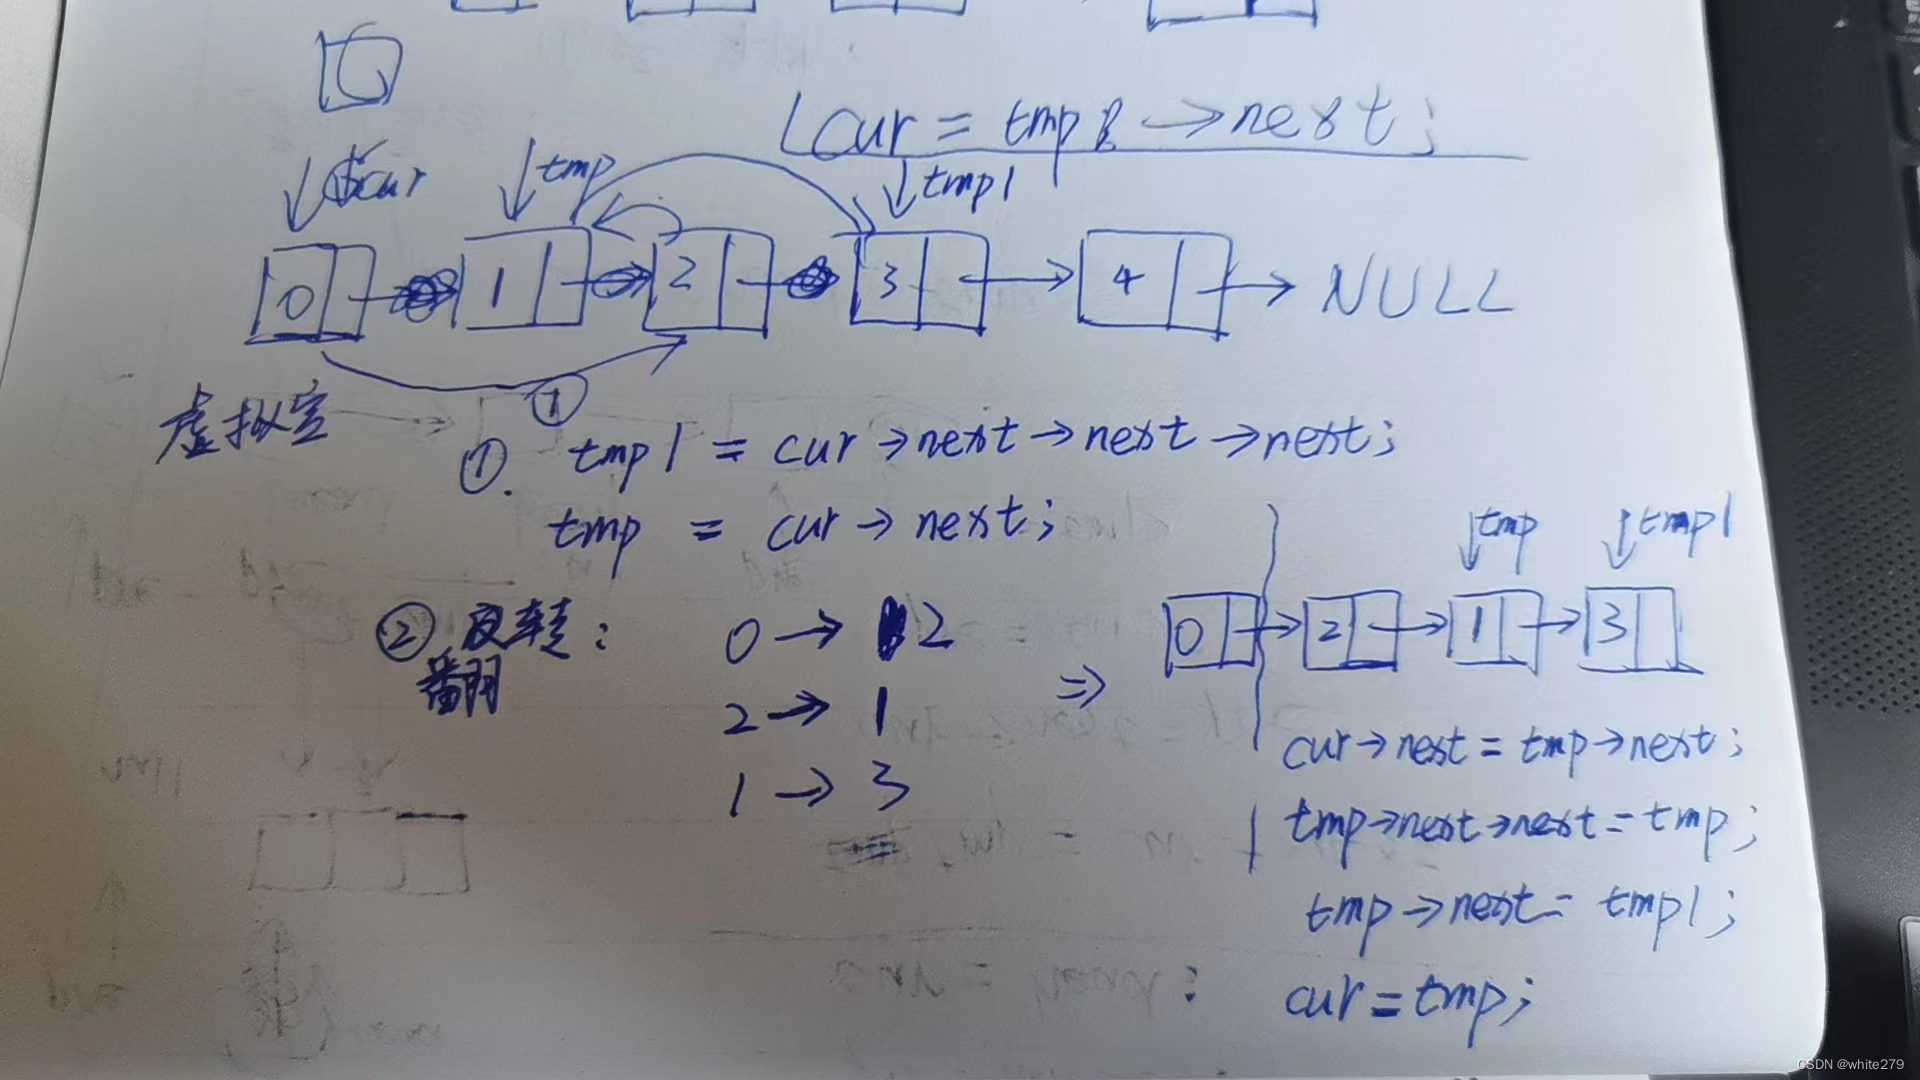 cur = tmp → next;
cur tmp tmp1
0 1 2 3 4 → NULL
虚拟空 ①
①. tmp1 = cur → next → next → next;
tmp = cur → next;
tmp tmp1
② 反转: 0 → 2
翻
2 → 1
1 → 3
⇒ 0 → 2 → 1 → 3
cur → next = tmp → next;
tmp → next → next = tmp;
tmp → next = tmp1;
cur = tmp;
CSDN @white279